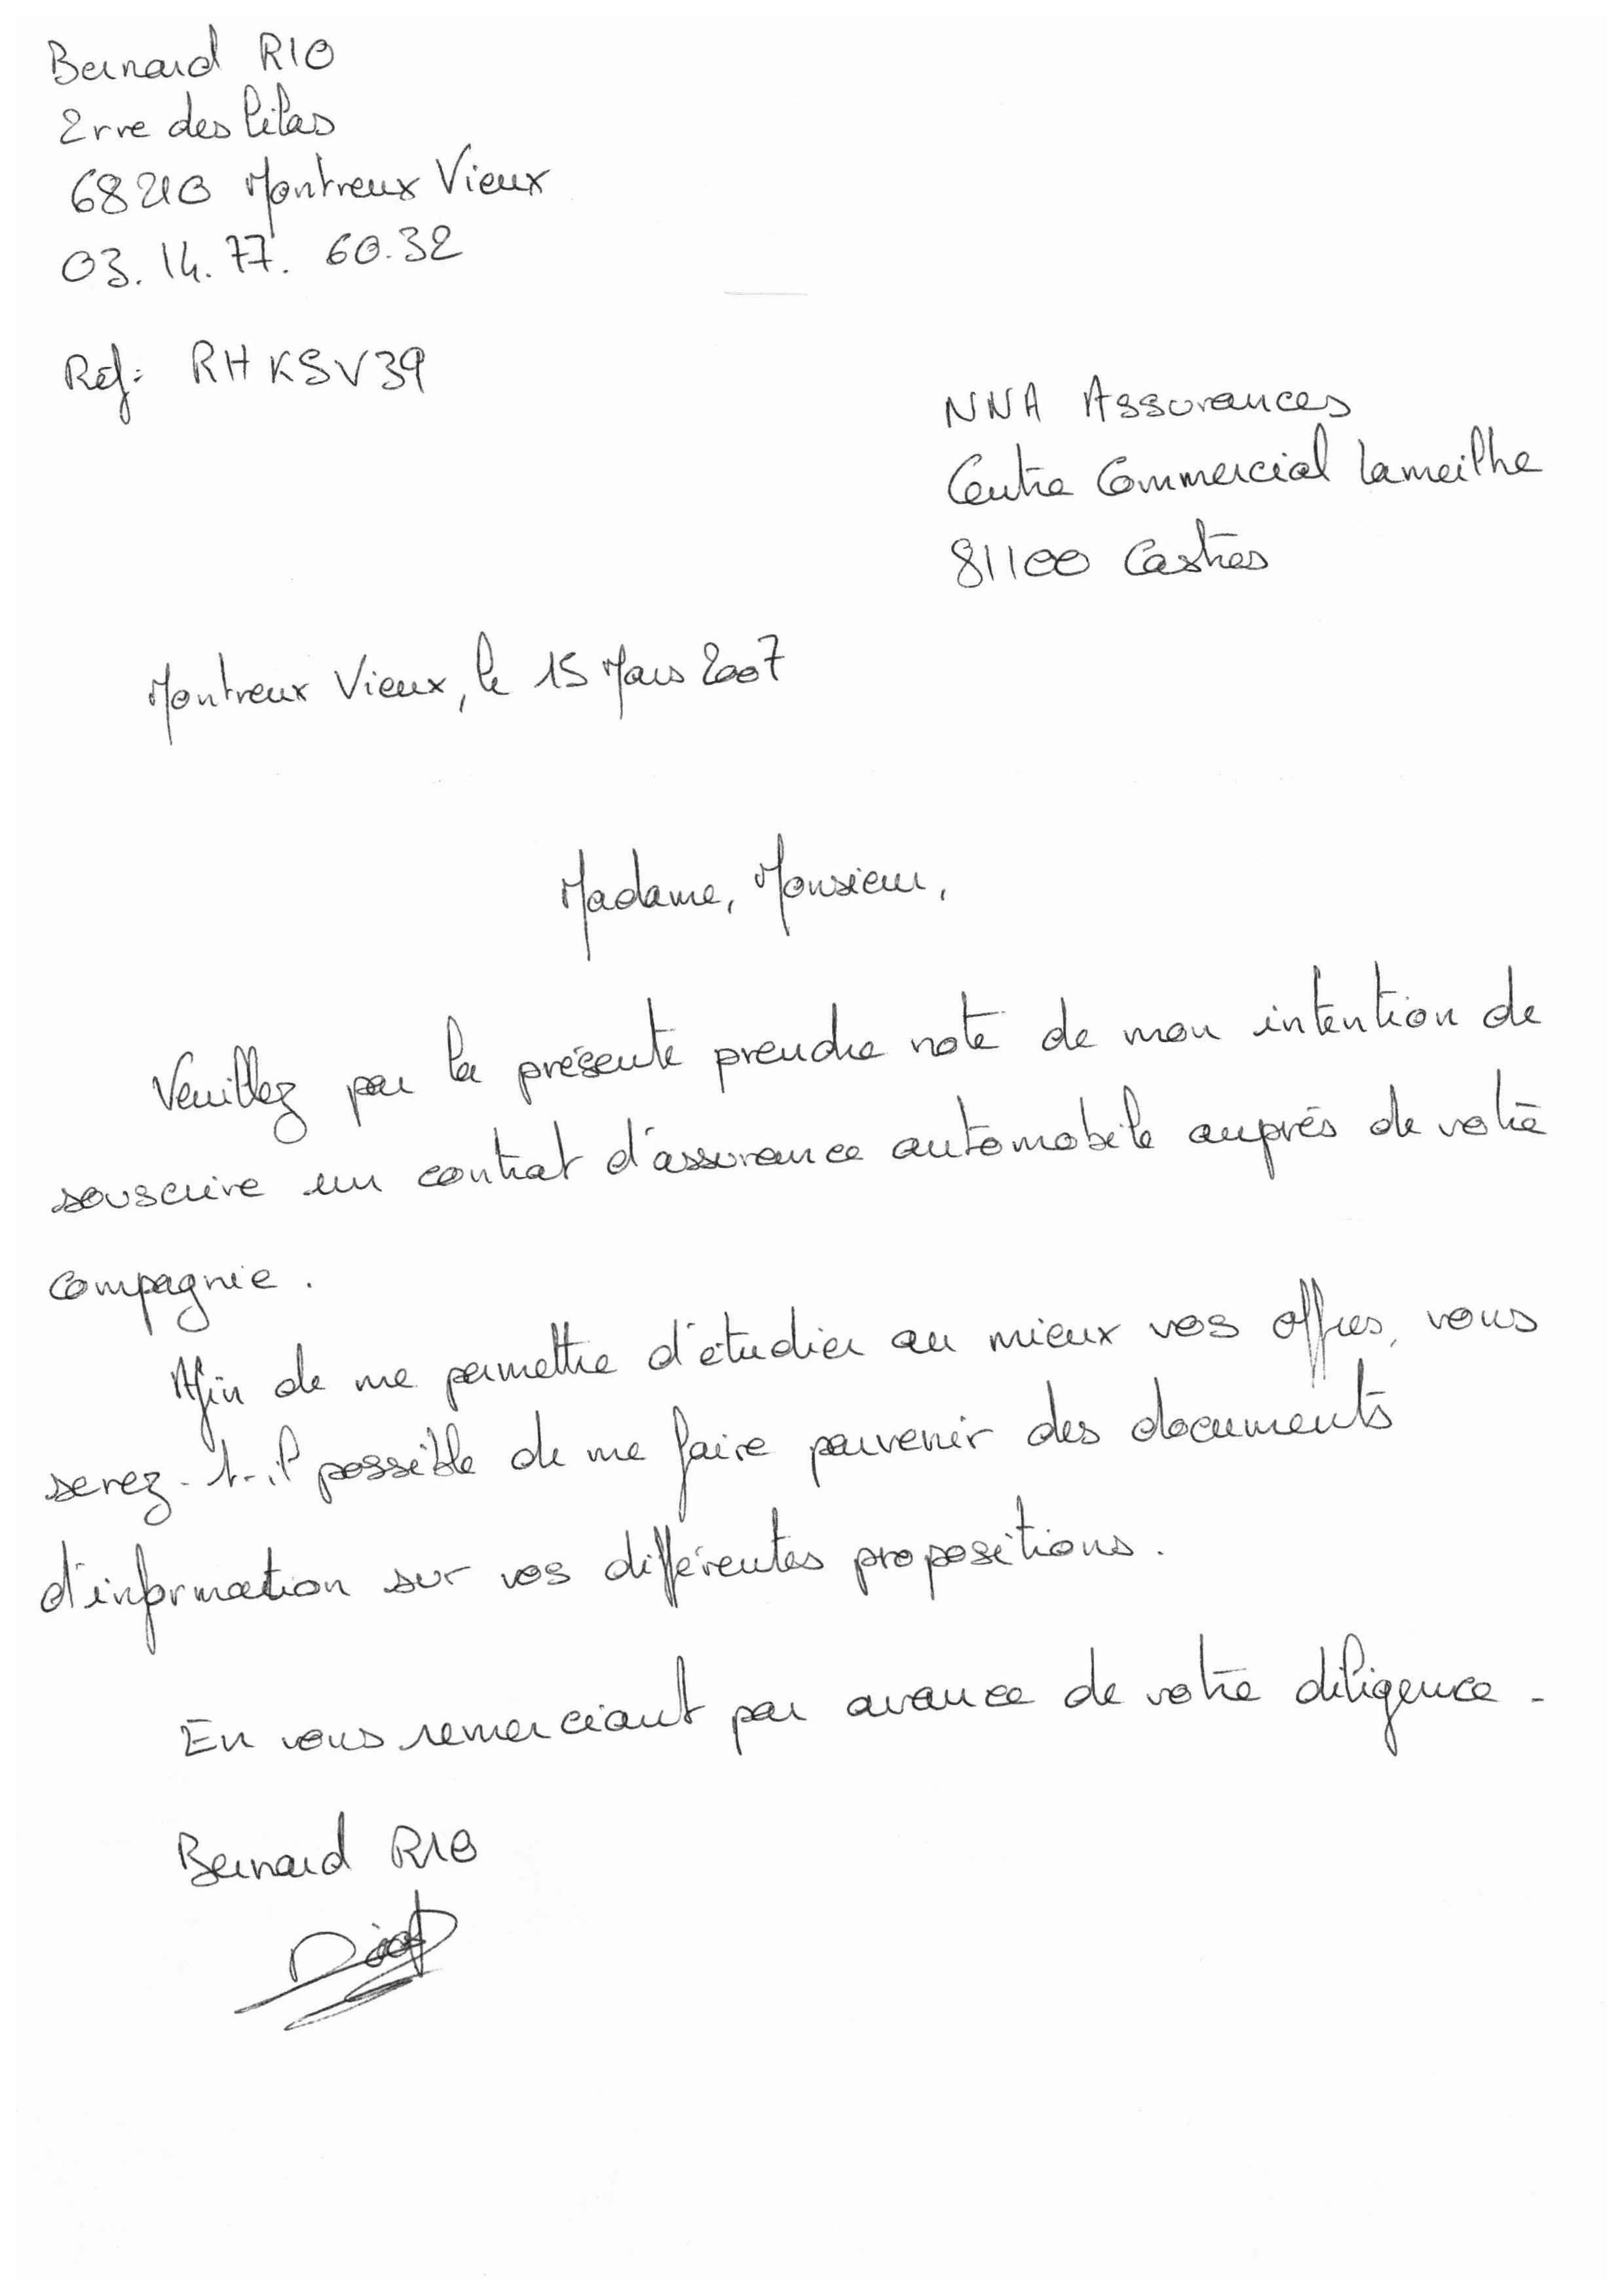 Bernard RIO
2 rue des lilas
68210 Montreux Vieux
03.14.77.60.32
Ref: RHKSV39
NNA Assurances
Centre Commercial Lameilhe
81100 Castres
Montreux Vieux, le 15 Mars 2007
Madame, Monsieur,
Veuillez par la présente prendre note de mon intention de
souscrire un contrat d'assurance automobile auprés de votre
compagnie.
Afin de me permettre d'étudier au mieux vos offres, vous
serez-t-il possible de me faire parvenir des documents
d'information sur vos différentes propositions.
En vous remerciant par avance de votre diligence.
Bernard RIO